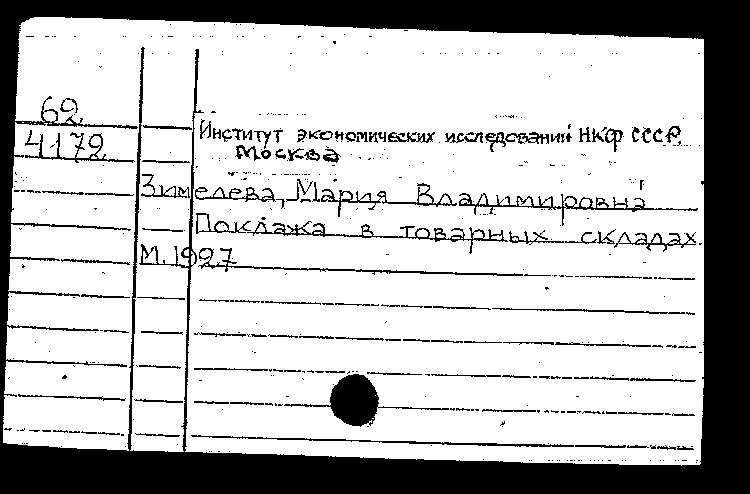 62
4172
Институт экономических исследований НКФ СССР.
Москва
Зимелева, Мария Владимировна
Поклажа в товарных складах.
М. 1927